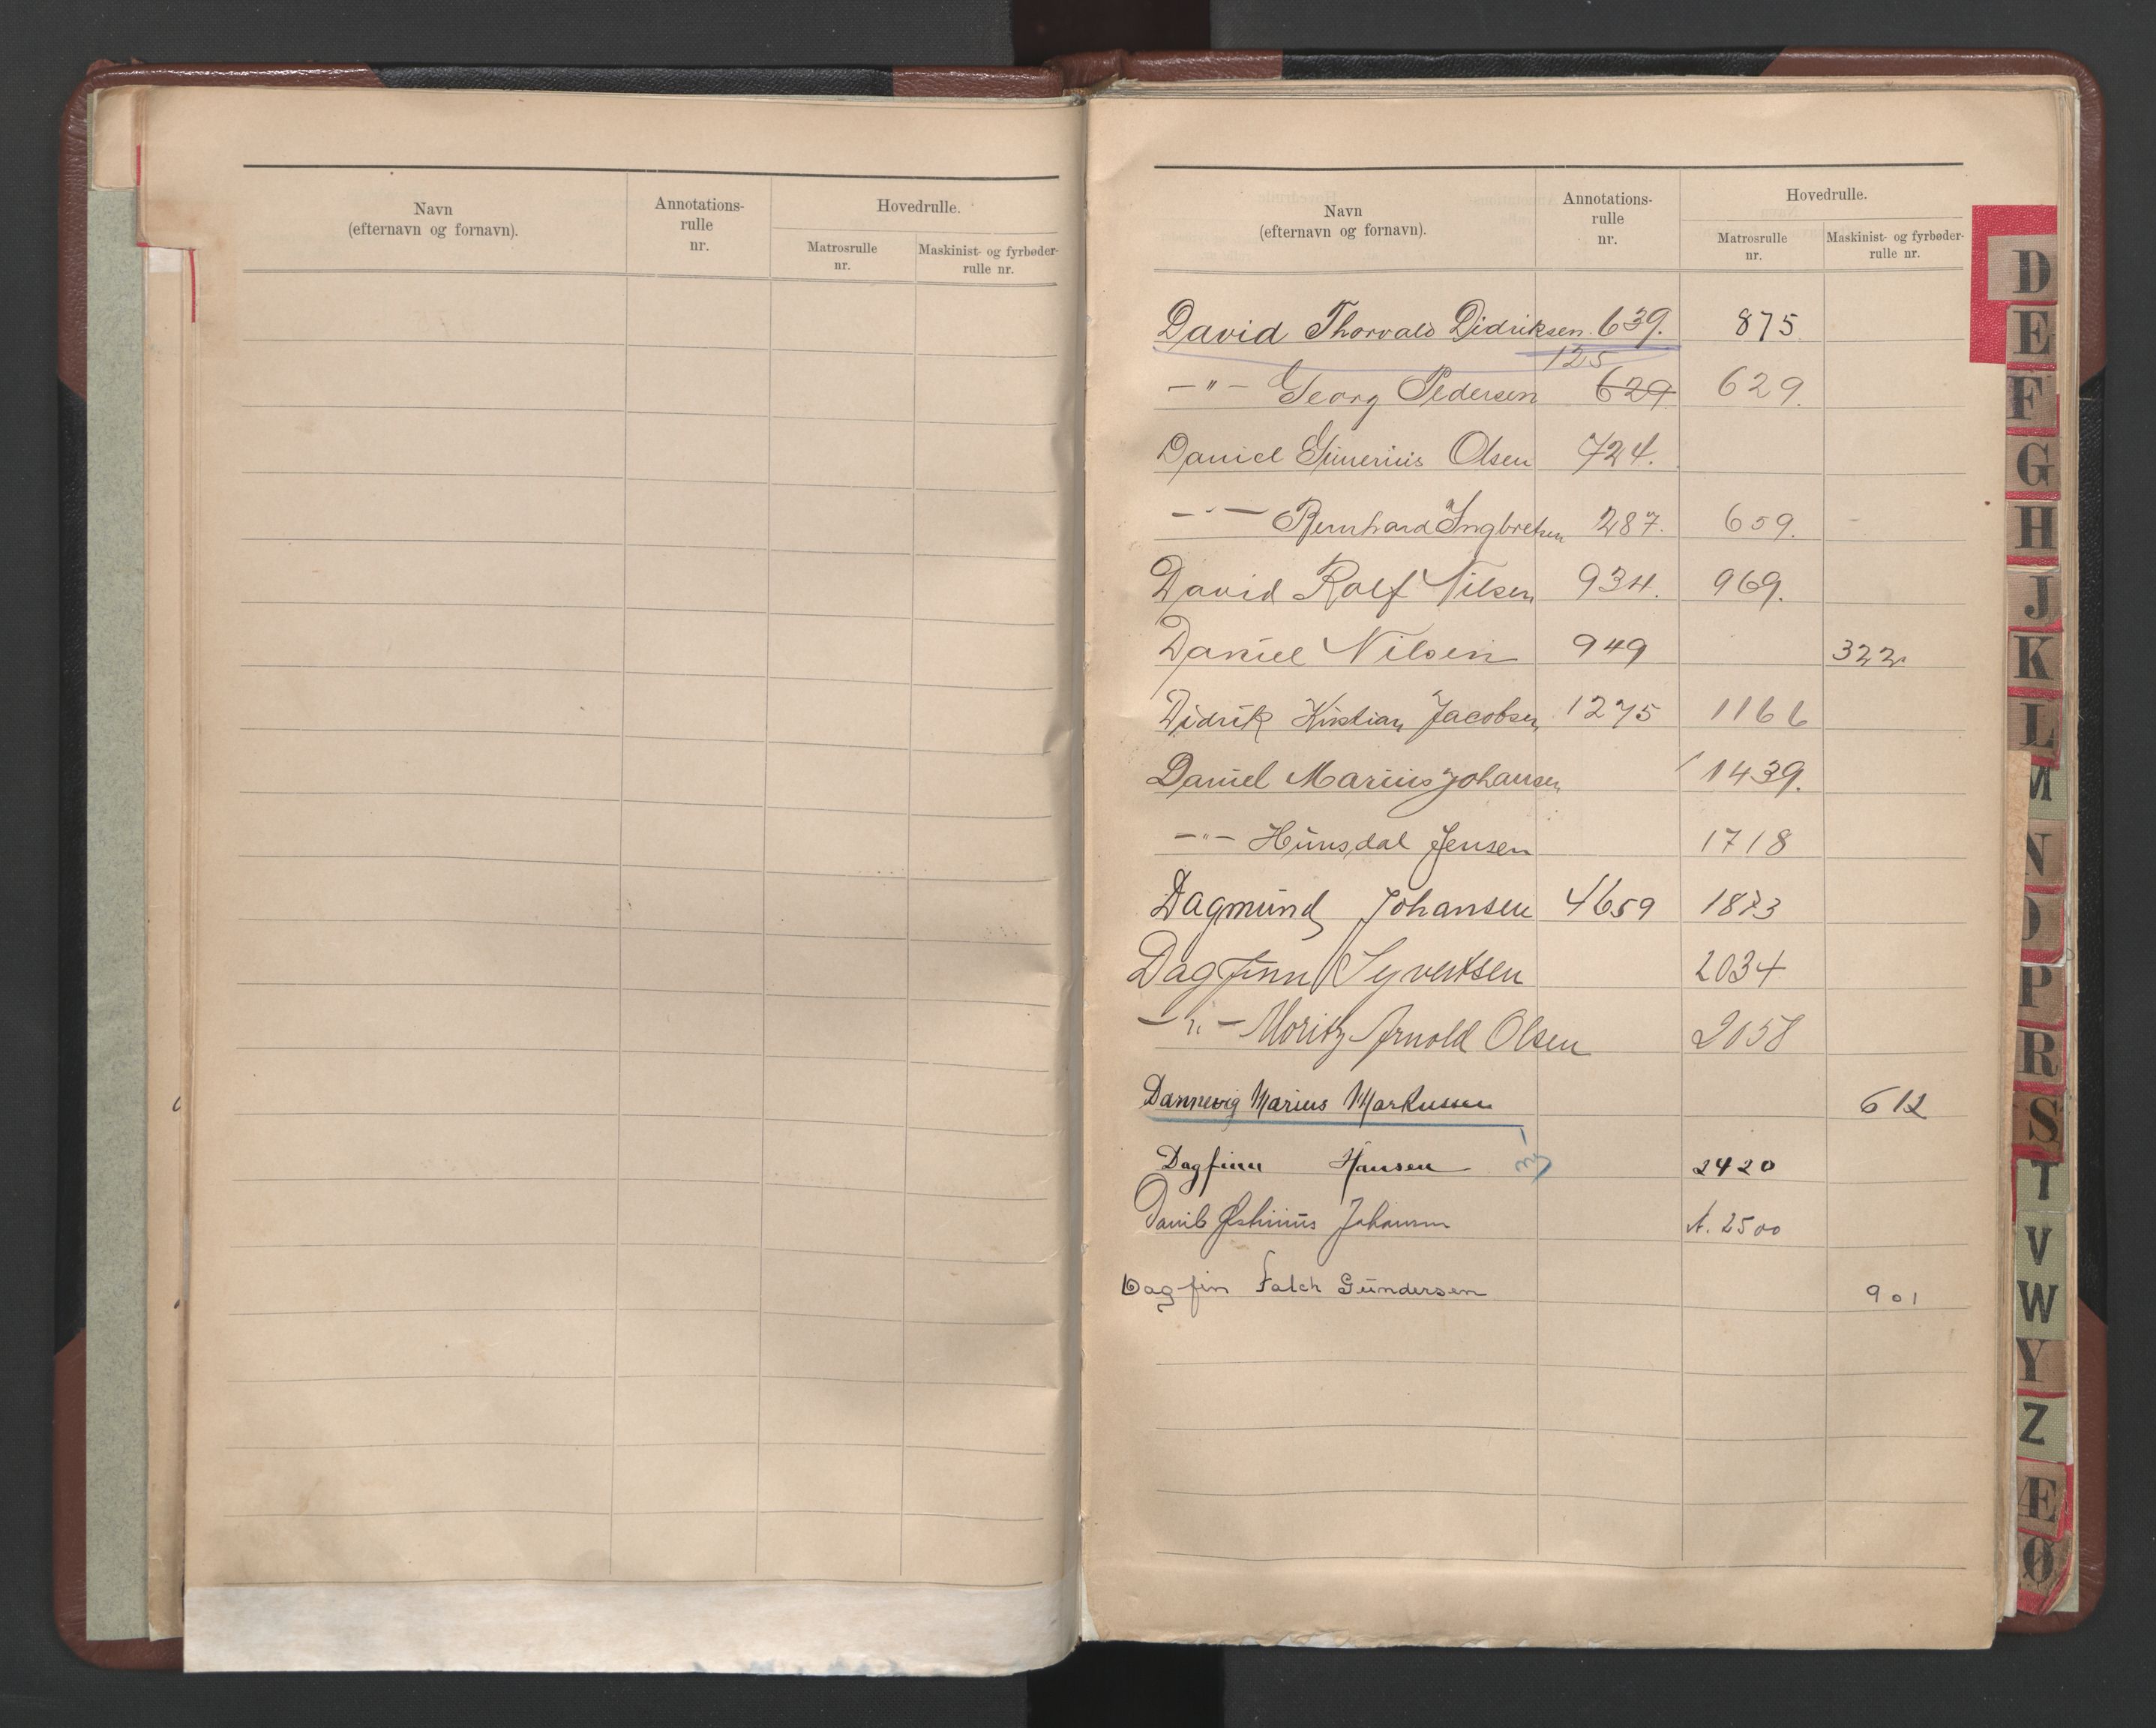 Navn
(efternavn og fornavn).
Annotations-
rulle
nr.
Hovedrulle.
Matrosrulle
nr.
Maskinist- og fyrbøder-
rulle nr.
Navn
(efternavn og fornavn).
Annotations-
rulle
nr.
Hovedrulle.
Matrosrulle
nr.
Maskinist- og fyrbøder-
rulle nr.
David Thorvald Didriksen. 639. 875
125
—"— Georg Pedersen 629 629.
Daniel Olsen 724.
—"— Bernhard Ingbretsen 287. 659.
David Rolf Nilsen 934. 969.
Daniel Nilsen 949 322
Didrik Kristian Jacobsen 1275 1166
Daniel Marius Johansen 1439.
—"— Hunsdal Jensen 1718
Dagmund Johansen 4659 1873
Dagfinn Syvertsen 2034
—"— Moritz Arnold Olsen 2058
Dannevig Marius Markussen 612
Dagfinn Hansen 2420
Johansen 2500
Dagfin Falch Gundersen 901
D
E
F
G
H
J
K
L
M
N
O
P
R
S
T
V
W
Y
Z
Æ
Ø